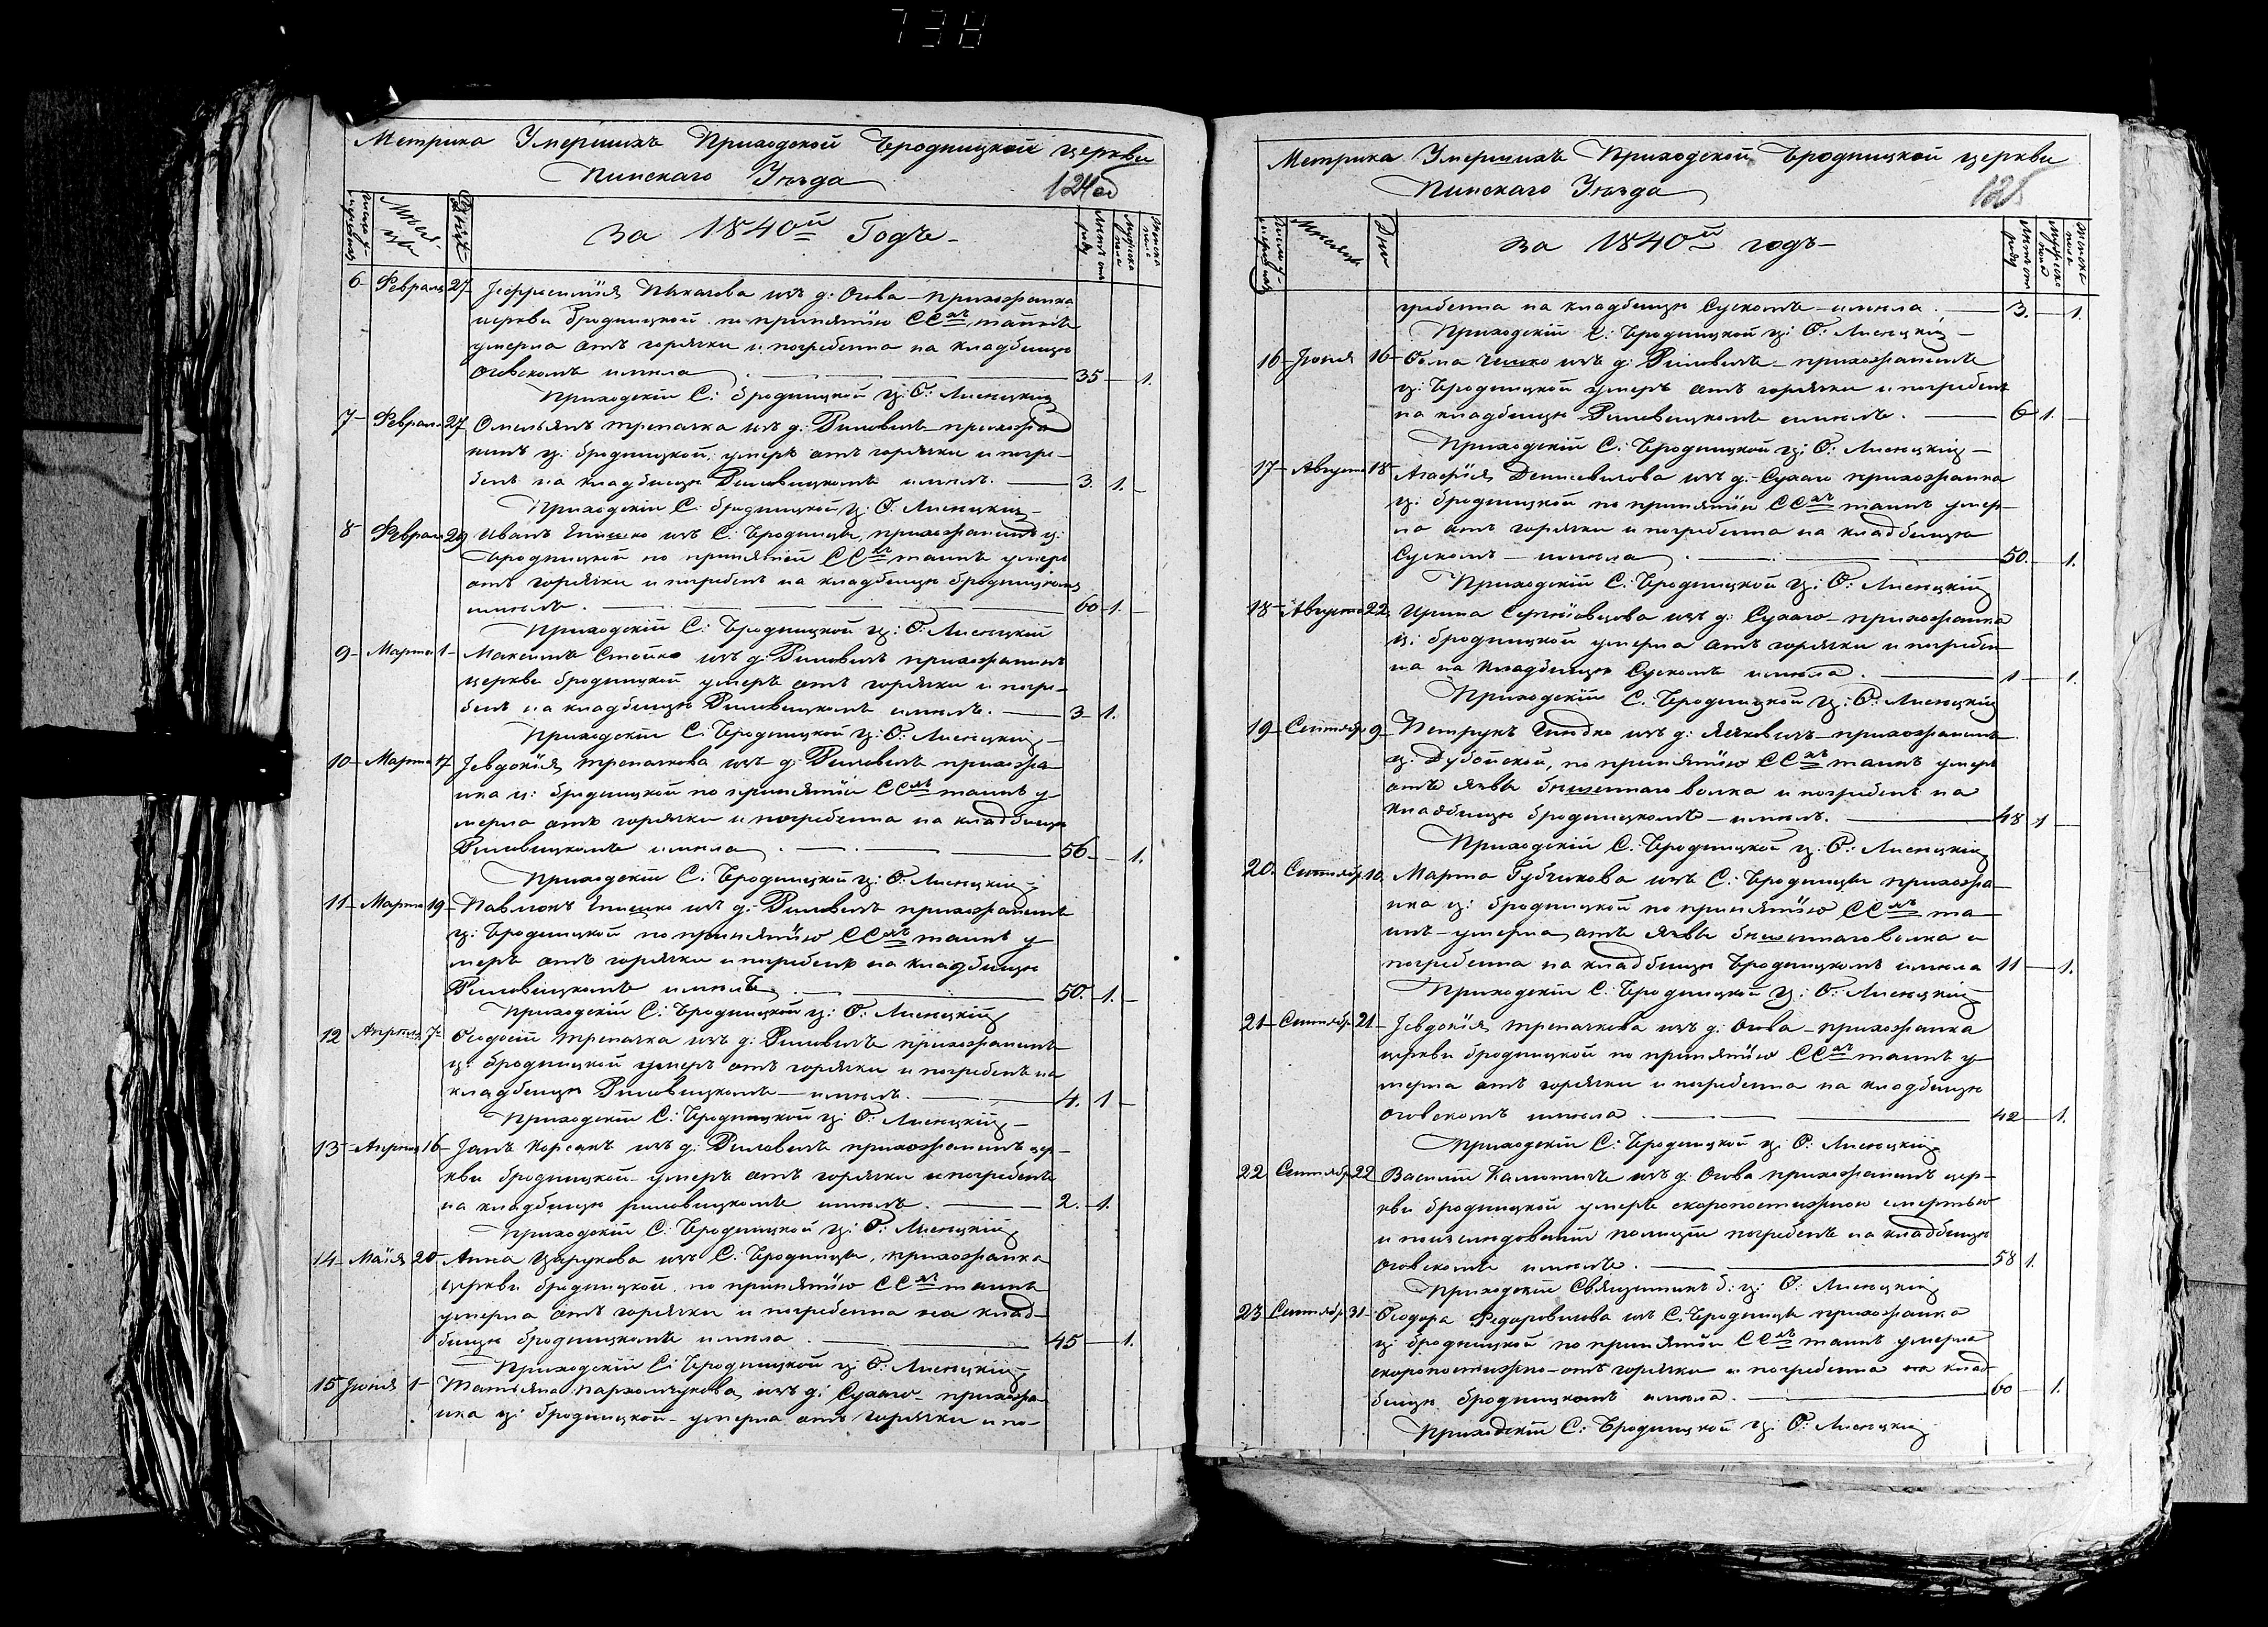 738
Метрика Умершихъ Приходской Бродницкой церкви
Пинскаго Уѣзда
124об
за 1840ой Годъ
6 Февраля 27 Іефросинія из д: Огова прихожанка
церкви бродницкой по принятію ССхъ таинъ
умерла отъ горячки и погребенна на кладбищи
Оговскомъ имѣла 35 1.
Приходскій С: бродницкой ц: Ѳ: Лисецкій
7 Феврал 27 Омельянъ Трепачка изъ д: Риловичъ прихожа
нинъ ц: бродницкой умеръ отъ горячки и погре-
бенъ на кладбищи Риловицкомъ имѣлъ. 3. 1.
Приходскій С: бродницкой ц: Ѳ: Лисецкій
8 Феврал 29 Иванъ Епишко изъ С: Бродницы, прихожанинъ ц:
Бродницкой по принятіи ССхъ таинъ умеръ
отъ горячки и погребенъ на кладбищи бродницкомъ
имѣлъ. 60 1.
Приходскій С: Бродницкой ц: Ѳ: Лисецкій
9 Марта 1 Максимъ Стойко изъ д: Риловичъ прихожанинъ
церкви бродницкой умеръ отъ горячки и погре-
бенъ на кладбищи Риловицкомъ имѣлъ. 3 1.
Приходскій С: Бродницкой ц: Ѳ: Лисецкій
10 Марта 17 Іевдокія Трепачкова изъ д: Риловичъ прихожа
нка ц: бродницкой по принятіи ССхъ таинъ у
мерла отъ горячки и погребенна на кладбищи
Риловицкомъ имѣла 56 1.
Приходскій С: Бродницкой ц: Ѳ: Лисецкій
11 Марта 19 Павлюкъ Епишко изъ д: Риловичъ прихожанинъ
ц: Бродницкой по принятію ССхъ таинъ у
меръ отъ горячки и погребенъ на кладбищи
Риловицкомъ имѣлъ 50. 1.
Приходскій С: Бродницкой ц: Ѳ: Лисецкій
12 Апрѣля 7 Ѳеодосій Трепачка изъ д: Риловичъ прихожанинъ
ц: бродницкой умеръ отъ горячки и погребенъ на
кладбищи Риловицкомъ имѣлъ. 4. 1
Приходскій С: Бродницкой ц: Ѳ: Лисецкій
13 Апрѣля 16 Іанъ Корсакъ изъ д: Риловичъ прихожанинъ цер-
кви бродницкой умеръ отъ горячки и погребенъ
на кладбищи риловицкомъ имѣлъ. 2. 1.
Приходскій С: Бродницкой ц: Ѳ: Лисецкій
14 Маія 20 Анна Царукова изъ С: Бродницы, прихожанка
церкви бродницкой, по принятію ССхъ таинъ
умерла отъ горячки и погребенна на клад-
бищи бродницкомъ имѣла 45 1.
Приходскій С: Бродницкой ц: Ѳ: Лисецкій
15 Іюня 1 Татьяна Пархомчукова изъ д: Сухаго прихожа
нка ц: бродницкой умерла отъ горячки и по-
Метрика Умершихъ Приходской Бродницкой церкви
Пинскаго Уѣзда
125
за 1840ой годъ
гребенна на кладбищи Сускомъ имѣла 3. 1.
Приходскій С: Бродницкой ц: Ѳ: Лисецкій
16 Іюня 16 Ѳома изъ д: Риловичъ прихожанинъ
ц: Бродницкой умеръ отъ горячки и погребенъ
на кладбищи Риловицкомъ имѣлъ. 6 1.
Приходскій С: Бродницкой ц: Ѳ: Лисецкій
17 Августа 18 Агафія Денисевичова изъ д: Сухаго прихожанка
ц: бродницкой по принятіи ССхъ таинъ умер-
ла отъ горячки и погребенна на кладбищи
Сускомъ имѣла 50. 1.
Приходскій С: Бродницкой ц: Ѳ: Лисецкій
18 Августа 22 Ирина изъ д: Сухаго прихожанка
ц: бродницкой умерла отъ горячки и погребен-
на на кладбищи Сускомъ имѣла. 1 1.
Приходскій С: Бродницкой ц: Ѳ: Лисецкій
19 Сентябр 9 Петрукъ изъ д: прихожанинъ
ц: Дубойской, по принятію ССхъ таинъ умеръ
отъ язвы бѣшеннаго волка и погребенъ на
кладбищи бродницкомъ имѣлъ. 48 1
Приходскій С: Бродницкой ц: Ѳ: Лисецкій
20. Сентябр 10. Марта Губчикова изъ С: Бродницы прихожа-
нка ц: бродницкой по принятію ССхъ та-
инъ умерла отъ язвы бѣшеннаго волка и
погребенна на кладбищи Бродницкомъ имѣла 11 1.
Приходскій С: Бродницкой ц: Ѳ: Лисецкій
21 Сентябр 21 Іевдокія Трепачкова изъ д: Огова прихожанка
церкви бродницкой по принятію ССхъ таинъ у
мерла отъ горячки и погребенна на кладбищи
Оговскомъ имѣла. 42 1.
Приходскій С: Бродницкой ц: Ѳ: Лисецкій
22 Сентябр 22 Василій изъ д: Огова прихожанинъ цер-
кви бродницкой умеръ скоропостижною смертью
и по изслѣдованіи полиціи погребенъ на кладбищи
Оговскомъ имѣлъ. 58 1.
Приходскій Священникъ б: ц: Ѳ: Лисецкій
23 Сентябр 31 Ѳеодора Федоровичова изъ С: Бродницы прихожанка
ц: бродницкой по принятіи ССхъ таинъ умерла
скоропостижно отъ горячки и погребенна на клад-
бищи бродницкомъ имѣла. 60 1.
Приходскій С: Бродницкой ц: Ѳ: Лисецкій